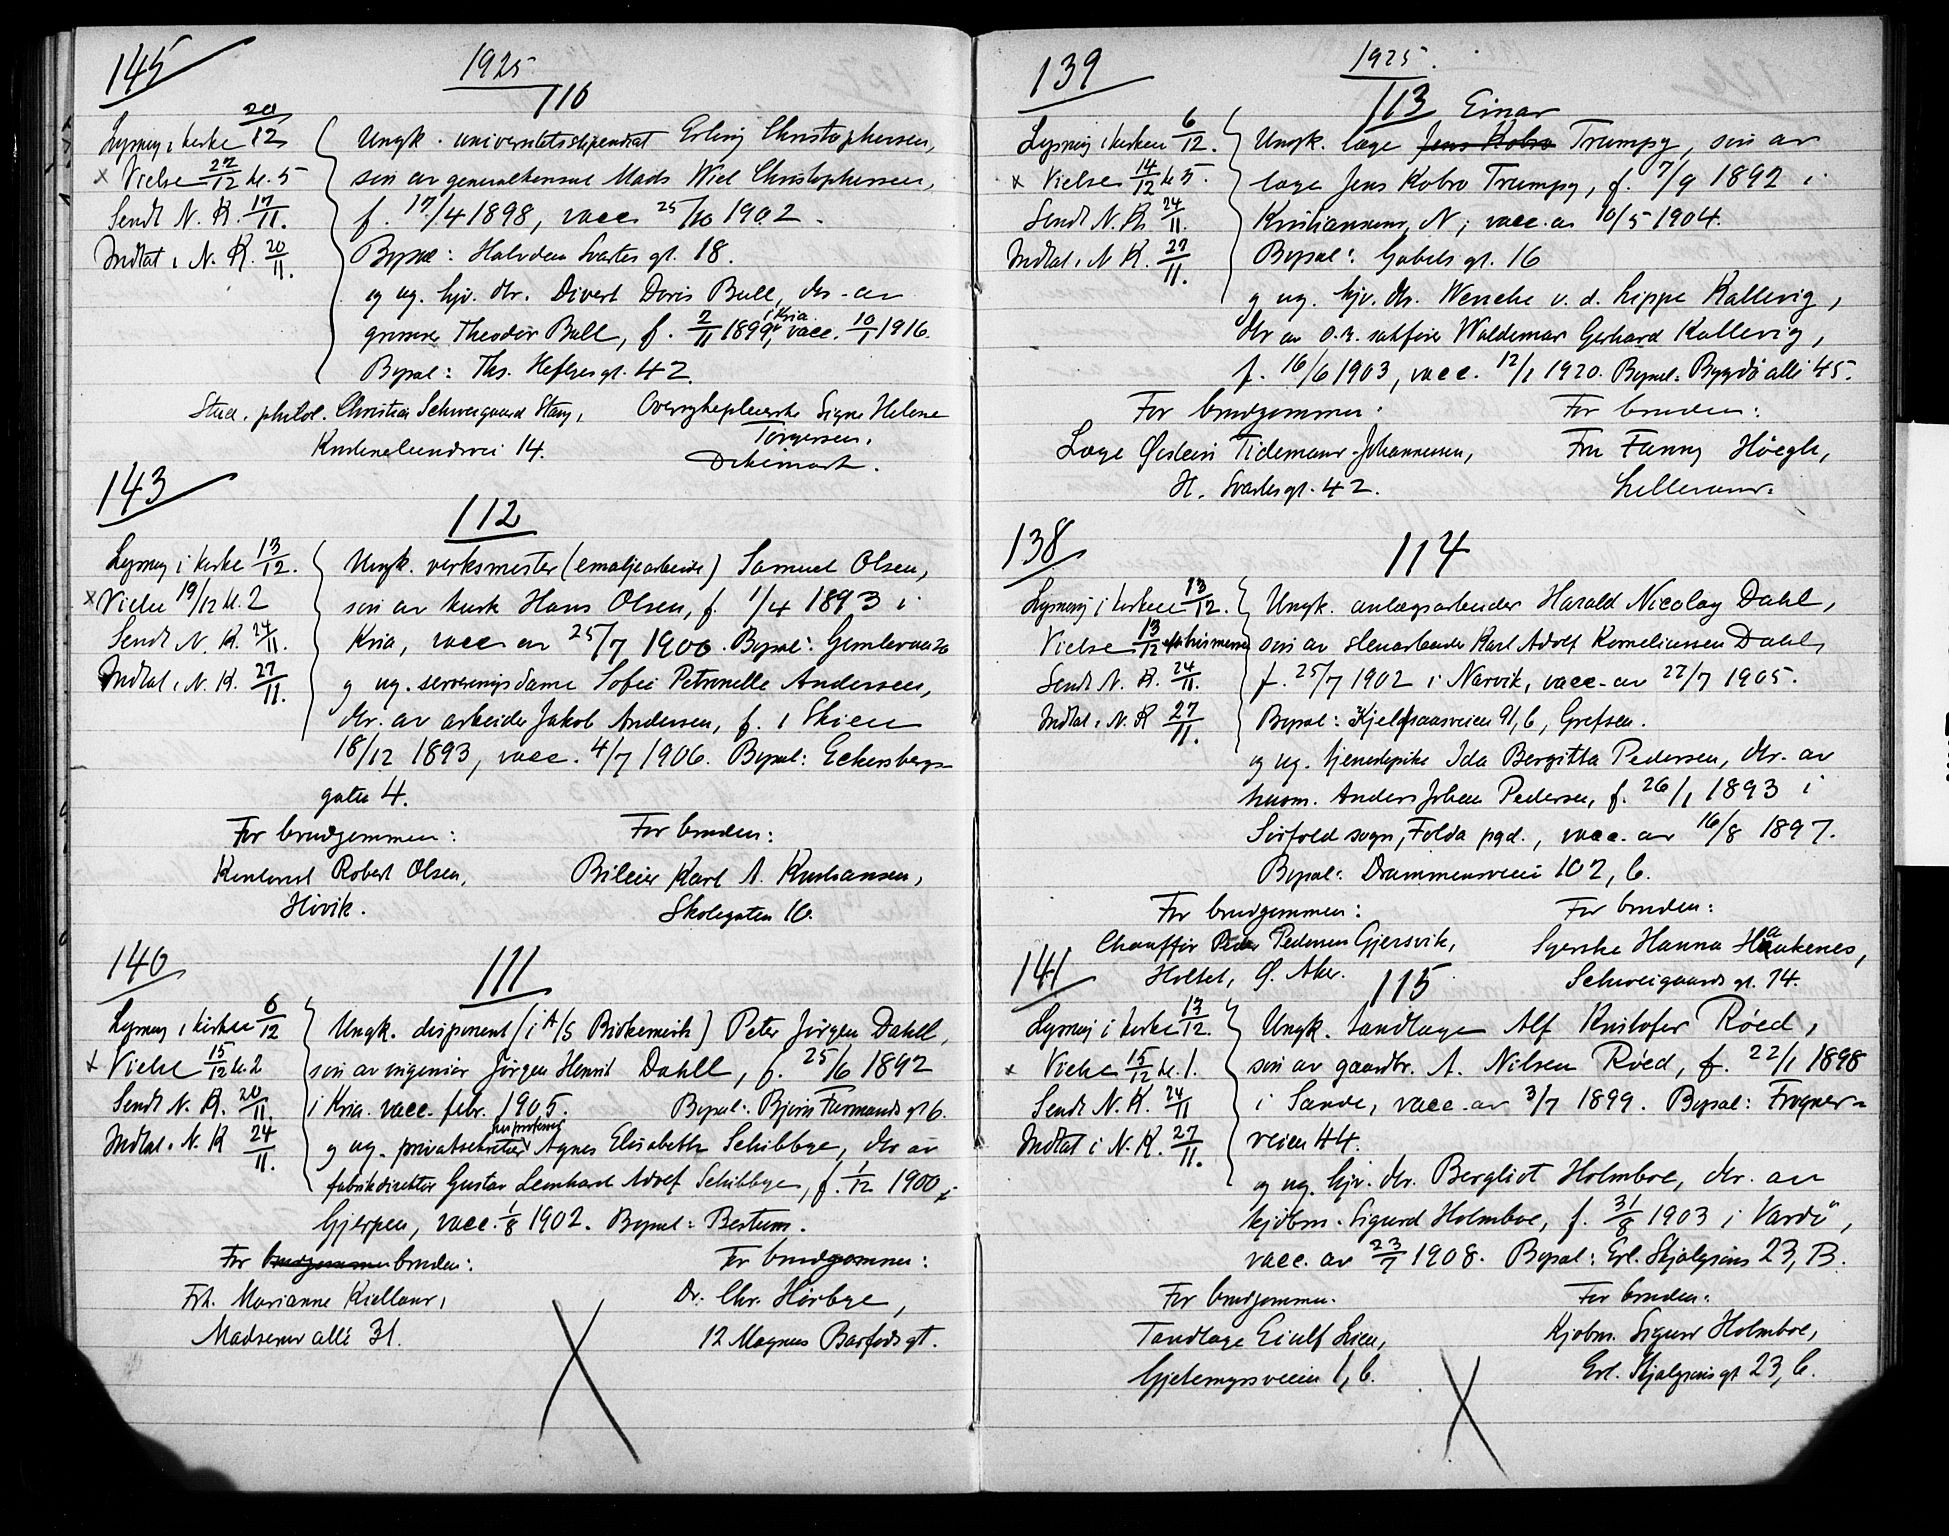 145
1925
116
Lysning i kirke 20/12
x Vielse 22/12 kl. 5
Sendt N. K. 17/11.
Indtat i N. K. 20/11.
Ungk. universitetsstipendiat Erling Christophersen,
søn av generalkonsul Mads Wiel Christophersen,
f. 17/4 1898, vacc. 25/10 1902.
Bopæl: Halvdan Svartes gt. 18.
og ug. hjv. dtr. Divert Doris Bull, dtr. av
grosserer Theodor Bull, f. 2/11 1899, i Kria. vacc. 10/1 1916.
Bopæl: Ths. Heftyes gt. 42.
Stud. philol. Christian Schweigaard Stang,
14.
Oversykepleierske Signe Helene
Torgersen,
Dikemark.
143
112
Lysning i kirke 13/12.
x Vielse 19/12 kl. 2
Sendt N. K. 24/11.
Indtat i N. K. 27/11.
Ungk. verksmester (emaljearbeide) Samuel Olsen,
søn av kusk Hans Olsen, f. 1/4 1893 i
Kria, vacc av 25/7 1900. Bopæl:
og ug. serveringsdame Sofie Petronelle Andersen,
dtr. av arbeider Jakob Andersen, f. i Skien
18/12 1893, vacc. 4/7 1906. Bopæl: Eckersbergs-
gaten 4.
For brudgommen:
For bruden:
Robert Olsen,
Høvik.
Bileier Karl A. Kristiansen,
Skolegaten 16.
140
111
Lysning i kirken 6/12
x Vielse 15/12 kl. 2
Sendt N. K. 20/11.
Indtat i N. K 24/11.
Ungk. disponent (i A/S Birkemerk) Peter Jørgen Dahll,
søn av ingeniør Jørgen Henrik Dahll, f. 25/6 1892
i Kria. vacc. febr. 1905. Bopæl: Bjørn Farmands gt 6.
og ug. privatsekretær Agnes Elisabeth Schibbye, dtr av
fabrikdirektør Gustav Lenhard Adolf Schibbye, f. 1/12 1900 i
Gjerpen, vacc. 1/8 1902. Bopæl: Bestum.
For brudgommen bruden:
For brudgommen:
Frk. Marianne Kielland,
Madserud allé 31.
Dr. Chr. Hørbye,
12 Magnus Barfods gt.
139
1925.
113
Lysning i kirken 6/12.
x Vielse 14/12 kl 5.
Sendt N. K. 24/11.
Indtat i N K. 27/11.
Einar
Ungk. læge Jens Kobro Trumpy, søn av
læge Jens Kobro Trumpy, f. 7/9 1892 i
Kristiansund, N, vacc. av 10/5 1904.
Bopæl: Gabels gt. 16
og ug. hjv. dtr. Wenche v. d. Lippe Kallevig,
dtr av o.r. sakfører Waldemar Gerhard Kallevig,
f. 16/6 1903, vacc. 12/1 1920. Bopæl: Bygdø allé 45.
For brudgommen:
For bruden:
Læge Øistein Tidemand-Johannessen,
H. Svartes gt. 42.
Fru Fanny Höegh,
Lilleaker.
138
114
Lysning i kirken 13/12.
Vielse 13/12
Sendt N. K. 24/11.
Indtat i N. K 27/11.
Ungk. anlægsarbeider Harald Nicolay Dahl,
søn av stenarbeider Karl Adolf Korneliussen Dahl,
f. 25/7 1902 i Narvik, vacc. av 22/7 1905.
Bopæl: Kjelsaasveien 91, b, Grefsen.
og ug. tjenestepike Ida Bergitta Pedersen, dtr. av
husm. Anders Johan Pedersen, f. 26/1 1893 i
Sørfold sogn, Folda pgd., vacc. av 16/8 1897.
Bopæl: Drammensveien 102, b.
For brudgommen:
For bruden:
Chauffør Peder Pedersen Gjersvik,
Holtet, Ø. Aker.
Syerske Hanna Haukenes,
Schweigaards gt. 74.
141
115
Lysning i kirke 13/12.
x Vielse 15/12 kl. 1.
Sendt N. K. 24/11
Indtat i N. K. 27/11.
Ungk. tandlæge Alf Kristofer Røed,
søn av gaardbr. A. Nilsen Røed, f. 22/1 1898
i Sande, vacc. av 3/7 1899. Bopæl: Frogner-
veien 44.
og ug. hjv. dtr. Bergliot Holmboe, dtr. av
kjøbm. Sigurd Holmboe, f. 31/8 1903 i Vardø,
vacc. av 23/7 1908. Bopæl: Erl. Skjalgsøns 23, B.
For brudgommen.
For bruden:
Tandlæge Eiulf Lien,
Gjetemyrsveien 1, b.
Kjøbm. Sigurd Holmboe,
Erl. Skjalgsøns gt 23, b.